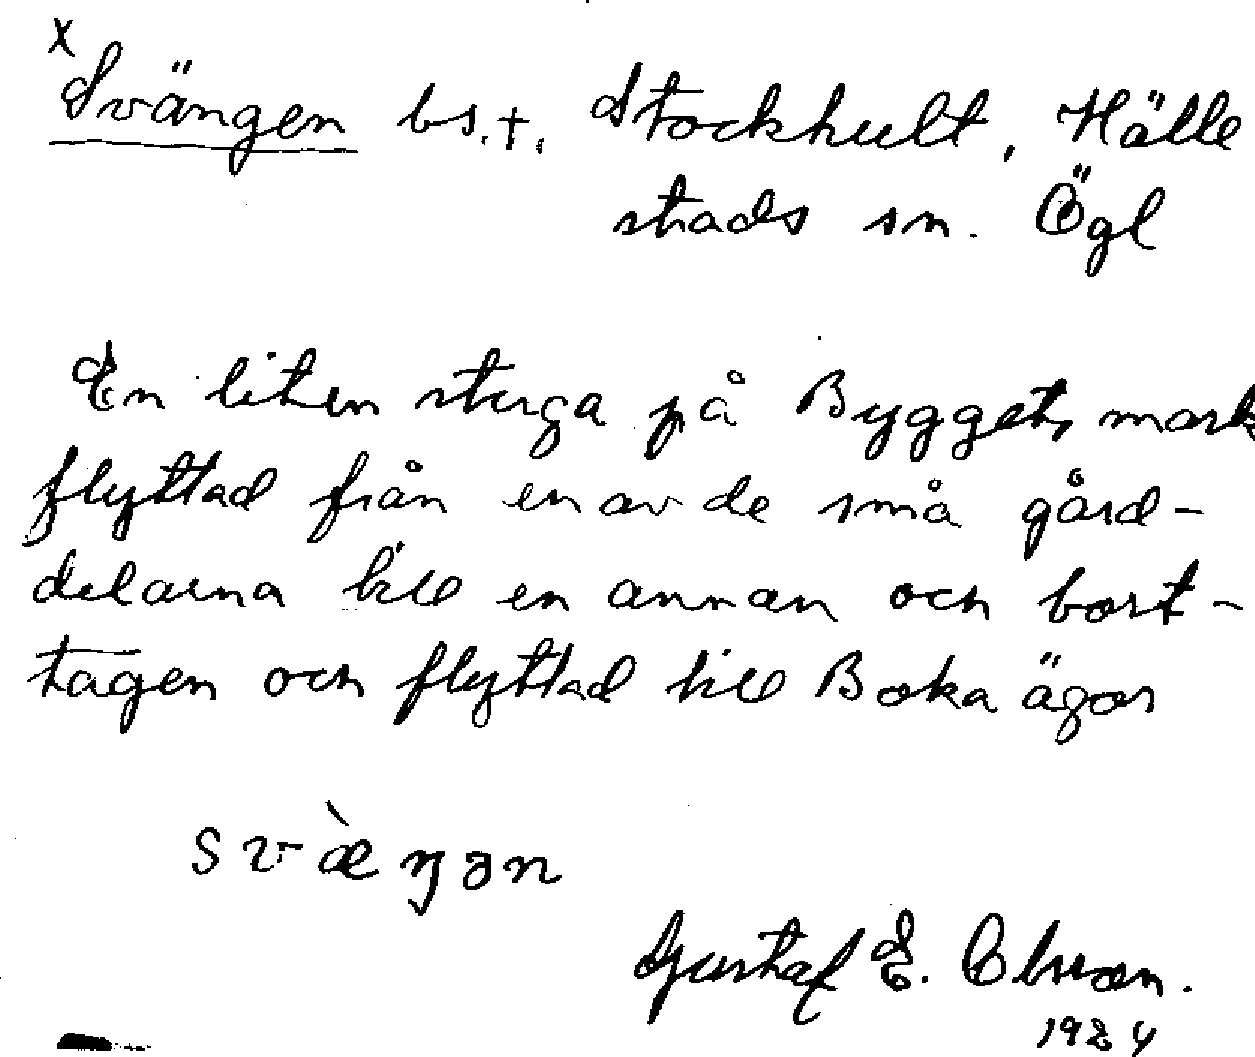 x
Svängen bs.t. Stockhult, Hälle
stads sn. Ögl
En liten stuga på Byggets mark
flyttad från en av de små gård-
delarna till en annan och bort-
tagen och flyttad till Boka ägor
svæ̀ŋən
Gustaf E. Olsson.
1924